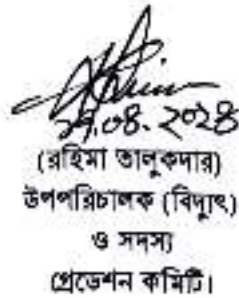 ২৭.০৪.২০২৪
(রহিমা তালুকদার)
উপপরিচালক (বিদ্যুৎ)
ও সদস্য
গ্রেডেশন কমিটি।